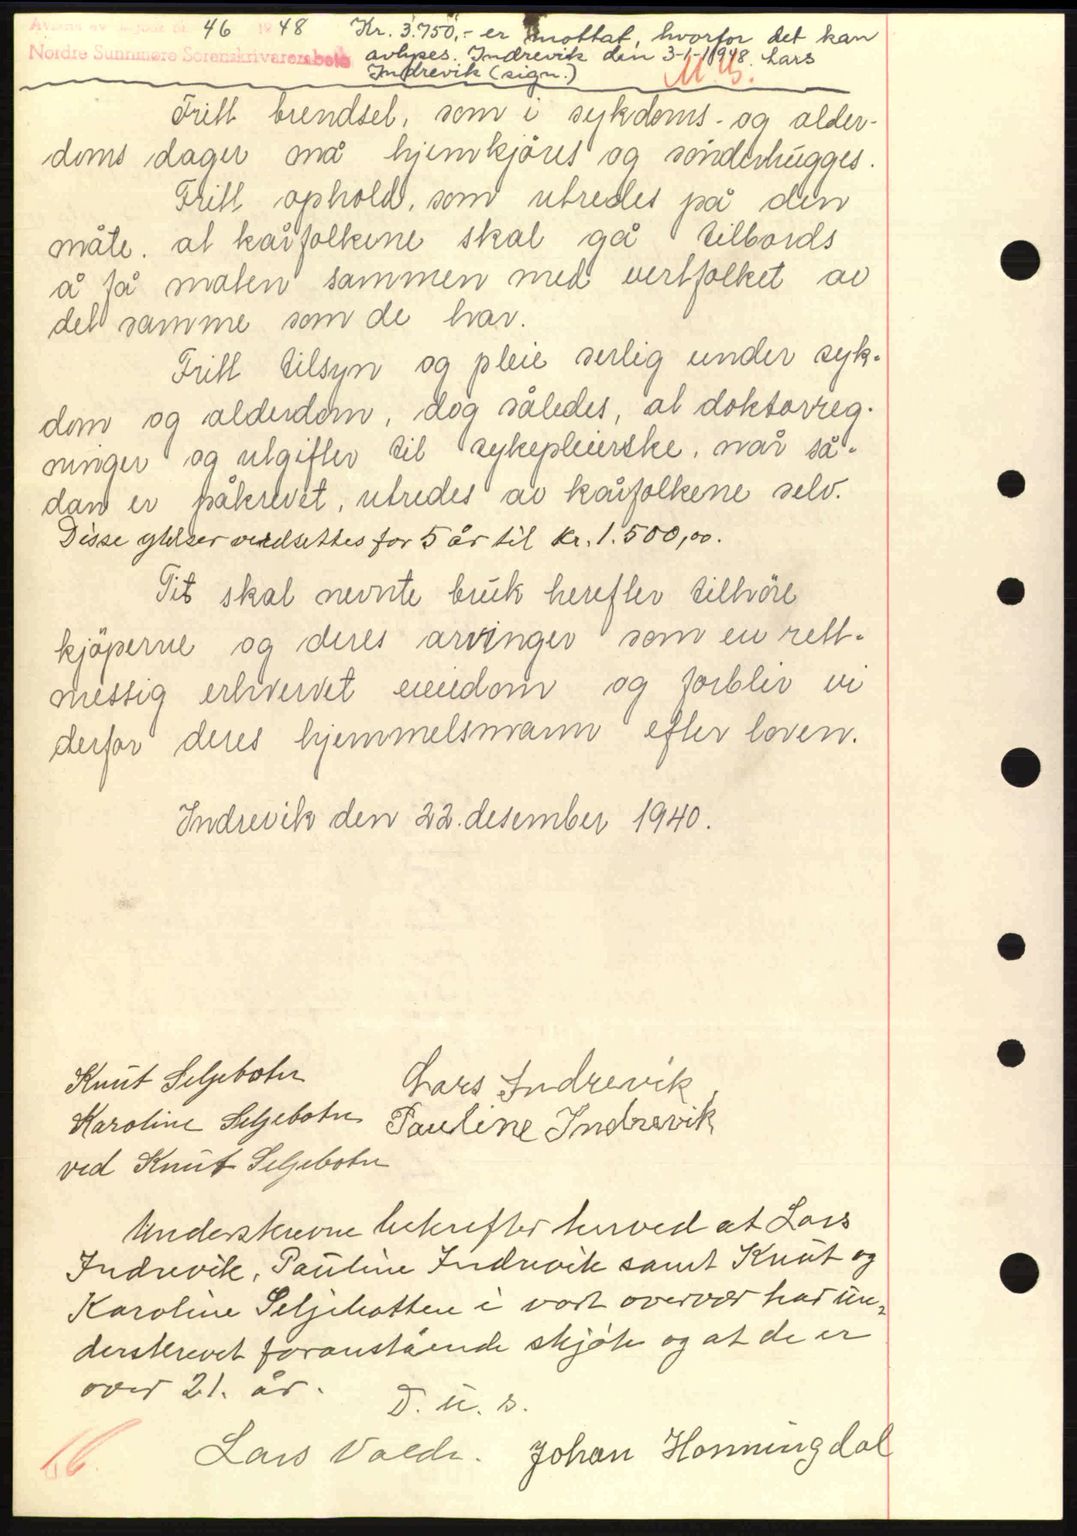 46 1948 Kr. 3.750,- er mottat, hvorfor det kan
Nordre Sunnmøre Sorenskrivarembete avlyses. Indrevik den 3-1-1948. Lars
Indrevik (sign.)
Fritt brendsel, som i sykdoms- og alder-
doms dager må hjemkjøres og sønderhugges.
Fritt ophold, som utredes på den
måte. at kårfolkene skal gå tilbords
å få maten sammen med vertfolket av
det samme som de har.
Fritt tilsyn og pleie serlig under syk-
dom og alderdom, dog således, at doktorreg-
ninger og utgifter til sykepleierske, når så-
dan er påkrevet, utredes av kårfolkene selv.
Disse ytelser verdsettes for 5 år til kr. 1.500,00.
Tit skal nevnte bruk herefter tilhøre
kjøperne og deres arvinger som en rett-
messig erhvervet eiendom og forblir vi
derfor deres hjemmelsmann efter loven.
Indrevik den 22. desember 1940.
Knut Seljebotn Lars Indrevik,
Karoline Seljebotn Pauline Indrevik
ved Knut Seljebotn
Underskrevne bekrefter herved at Lars
Indrevik, Pauline Indrevik samt Knut og
Karoline Seljebotten i vort overvær har un-
derskrevet foranstående skjøte og at de er
over 21. år.
D. u. s.
16 Lars Valde. Johan Honningdal